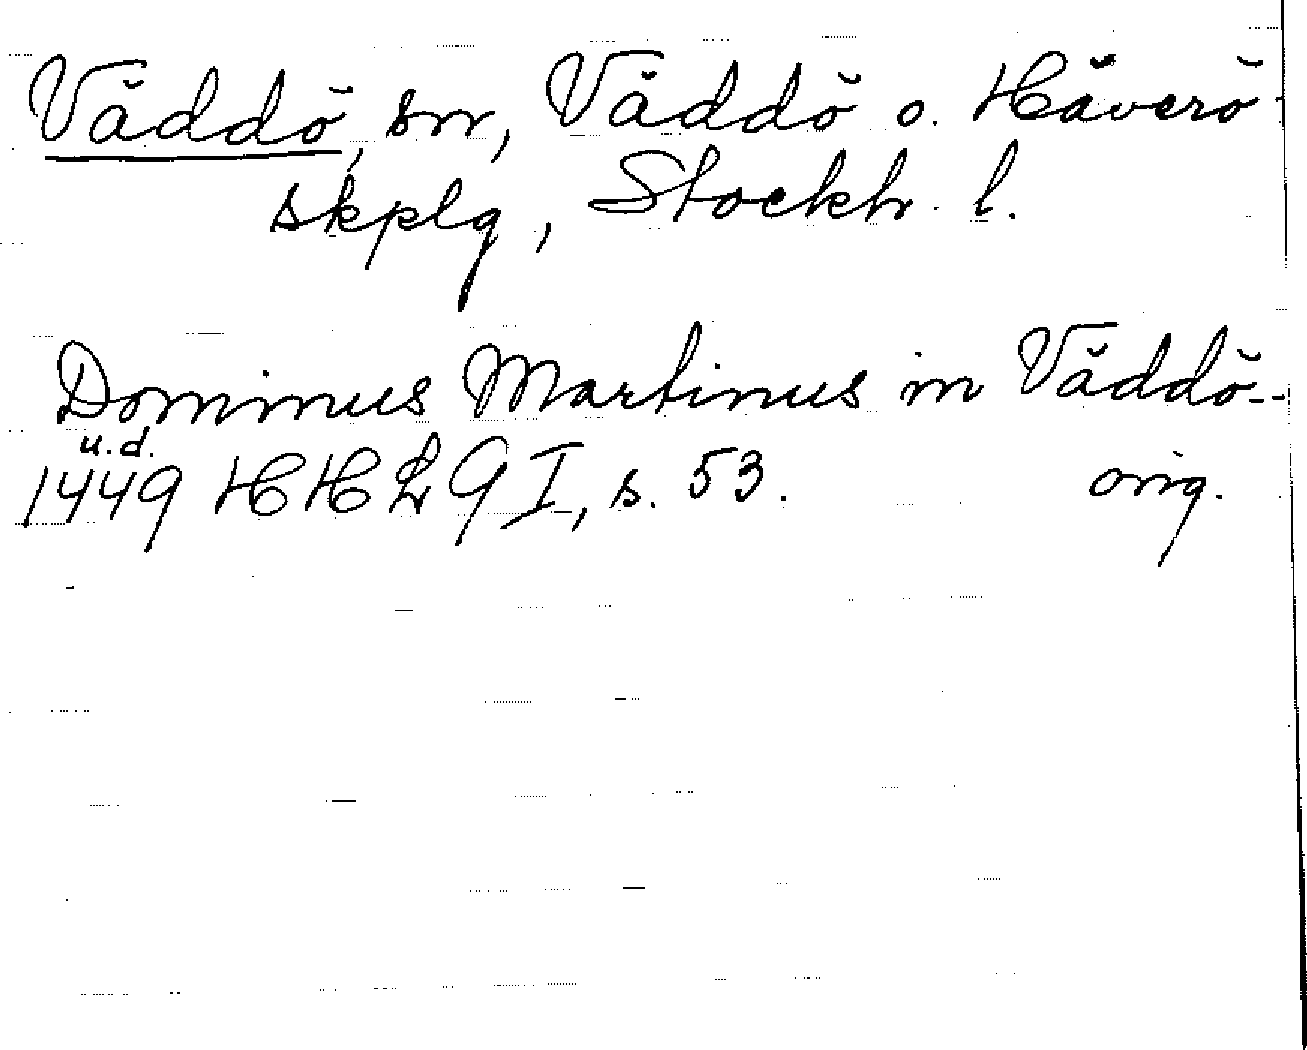 Väddö, sn, Väddö o. Häverö
skplg, Stockh. l.
Dominus Martinus in Väddö--
u.d.
1449 HH L 9 I, s. 53. orig.